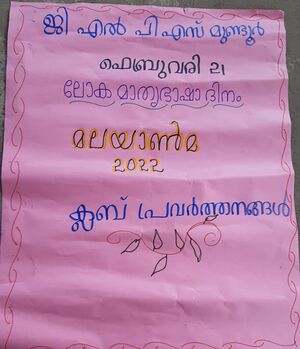 ജി എൽ പി എസ് മുണ്ടൂർ
ഫെബ്രുവരി 21
ലോക മാതൃഭാഷാ ദിനം
മലയാൺമ
2022
ക്ലബ് പ്രവർത്തനങ്ങൾ